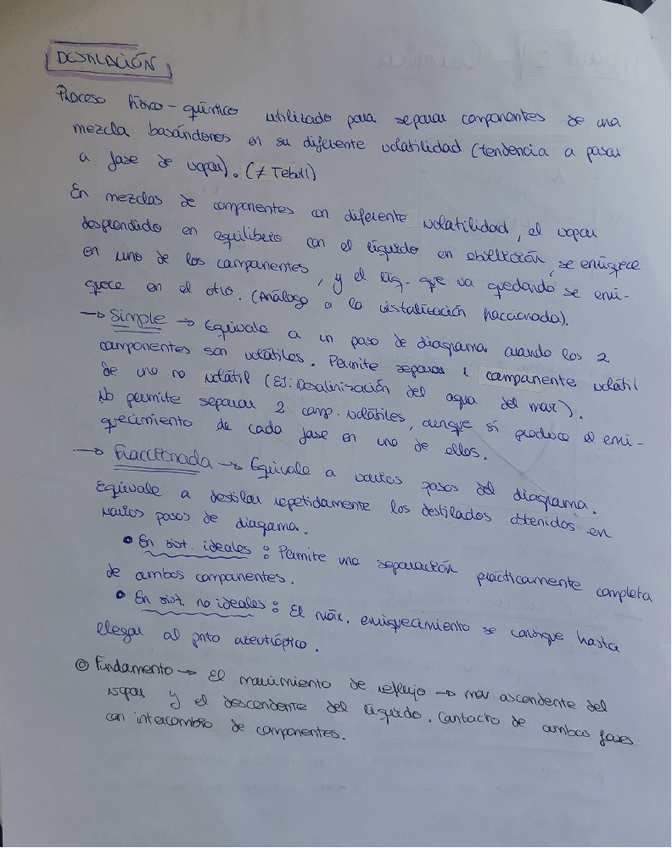 DESTILACIÓN
Proceso físico-químico utilizado para separar componentes de una
mezcla basándonos en su diferente volatilidad (tendencia a pasar
a fase de vapor). (≠ Tebull)
En mezclas de componentes con diferente volatilidad, el vapor
desprendido en equilibrio con el líquido en ebullición, se enriquece
en uno de los componentes, y el líq. que va quedando se enri-
quece en el otro. (Análogo a la cristalización fraccionada).
→ Simple → Equivale a un paso de diagrama cuando los 2
componentes son volátiles. Permite separar 1 componente volátil
de uno no volátil (EJ: Desalinización del agua del mar).
No permite separar 2 comp. volátiles, aunque sí produce el enri-
quecimiento de cada fase en uno de ellos.
→ Fraccionada → Equivale a varios pasos del diagrama.
Equivale a destilar repetidamente los destilados obtenidos en
varios pasos de diagrama.
• En sist. ideales: Permite una separación prácticamente completa
de ambos componentes.
• En sist. no ideales: El máx. enriquecimiento se consigue hasta
llegar al pnto azeotrópico.
◎ Fundamento → El movimiento de reflujo → mov ascendente del
vapor y el descendente del líquido. Contacto de ambas fases
con intercambio de componentes.